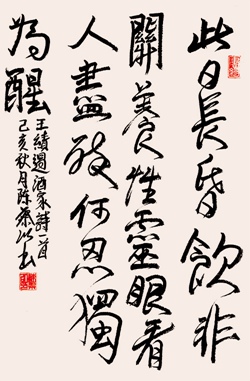 此日長昏飲非
關養性靈眼看
人盡醉何忍獨
為醒
王績過酒家詩一首
己亥秋月陈